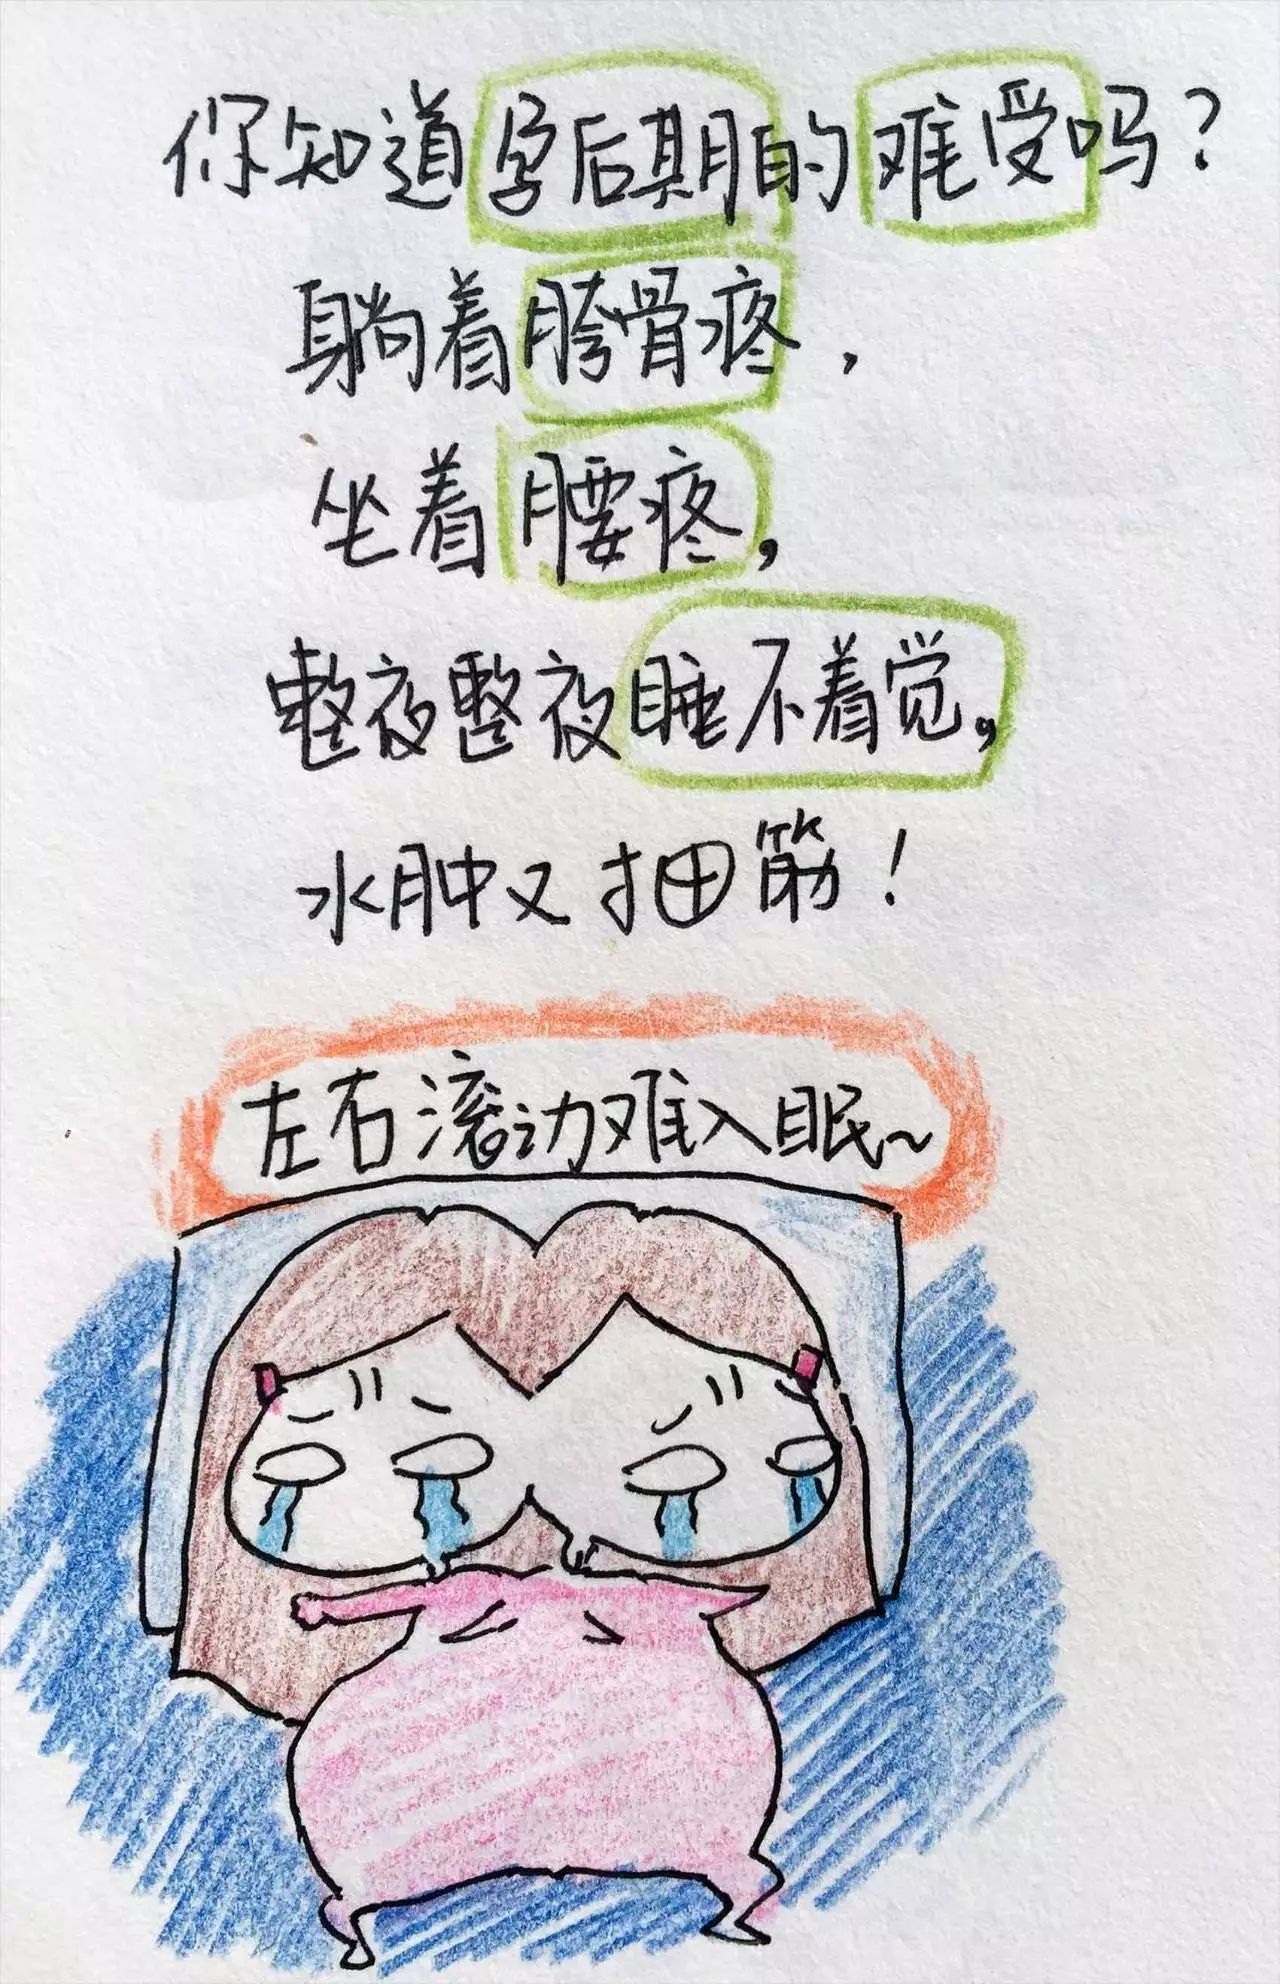 你知道孕后期的难受吗？
躺着胯骨疼，
坐着腰疼，
整夜整夜睡不着觉，
水肿又抽筋！
左右滚动难入眠~